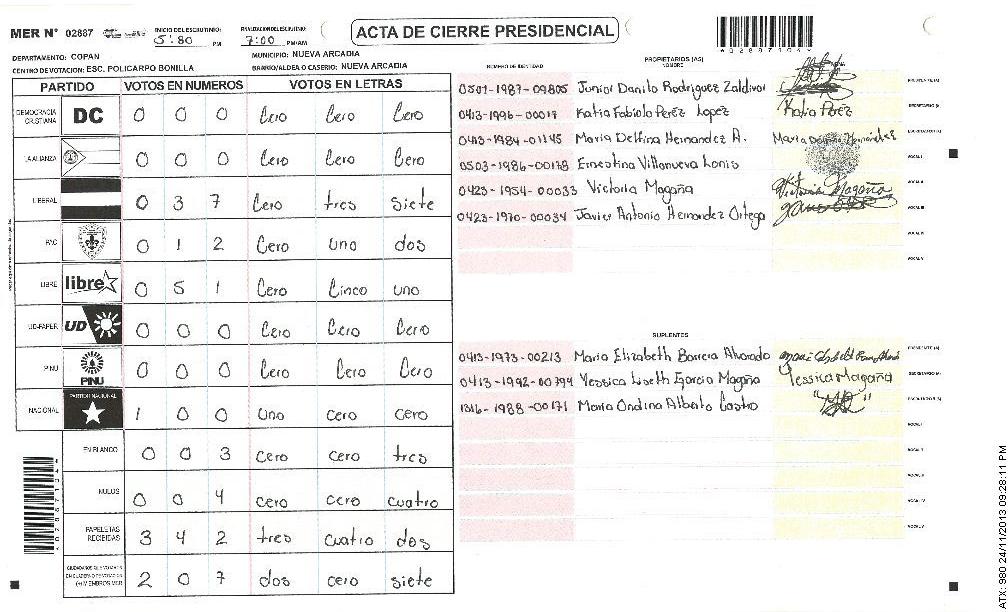 MER N° 02887
INICIO DEL ESCRUTINIO: 5:80 PM
7:00 PM/AM
ACTA DE CIERRE PRESIDENCIAL
DEPARTAMENTO: COPAN
MUNICIPIO: NUEVA ARCADIA
CENTRO DE VOTACION: ESC. POLICARPO BONILLA
BARRIO/ALDEA O CASERIO: NUEVA ARCADIA
PARTIDO VOTOS EN NUMEROS VOTOS EN LETRAS
DEMOCRACIA CRISTIANA DC 0 0 0 Cero Cero Cero
LA ALIANZA 0 0 0 Cero Cero Cero
LIBERAL 0 3 7 Cero tres siete
PAC 0 1 2 Cero uno dos
LIBRE libre 0 5 1 Cero Cinco uno
UD-FAPER UD 0 0 0 Cero Cero Cero
PINU PINU 0 0 0 Cero Cero Cero
NACIONAL PARTIDO NACIONAL 1 0 0 uno cero cero
EN BLANCO 0 0 3 cero cero tres
NULOS 0 0 4 cero cero cuatro
PAPELETAS RECIBIDAS 3 4 2 tres cuatro dos
CIUDADANOS QUE VOTARON EN CUADERNO DE VOTACION (+) MIEMBROS MER 2 0 7 dos cero siete
NUMERO DE IDENTIDAD PROPIETARIOS (AS) NOMBRE
0501-1987-09805 Junior Danilo Rodriguez Zaldivar PRESIDENTE (A)
0413-1996-00017 Katia Fabiola Perez Lopez Katia Perez SECRETARIO (A)
0413-1984-01145 Maria Delfina Hernandez A. Maria Delfina Hernández ESCRUTADOR (A)
0503-1986-00178 Ernestina Villanueva Lonis VOCAL I
0423-1954-00033 Victoria Magaña Victoria Magaña VOCAL II
0423-1970-00034 Javier Antonio Hernandez Ortega VOCAL III
VOCAL IV
VOCAL V
SUPLENTES
0413-1973-00213 Maria Elizabeth Barrera Alvarado PRESIDENTE (A)
0413-1992-00794 Yessica Liseth Garcia Magaña Yessica Magaña SECRETARIO (A)
1316-1988-00171 Maria Ondina Alberto Castro ESCRUTADOR (A)
VOCAL I
VOCAL II
VOCAL III
VOCAL IV
VOCAL V
ATX: 980 24/11/2013 09:28:11 PM